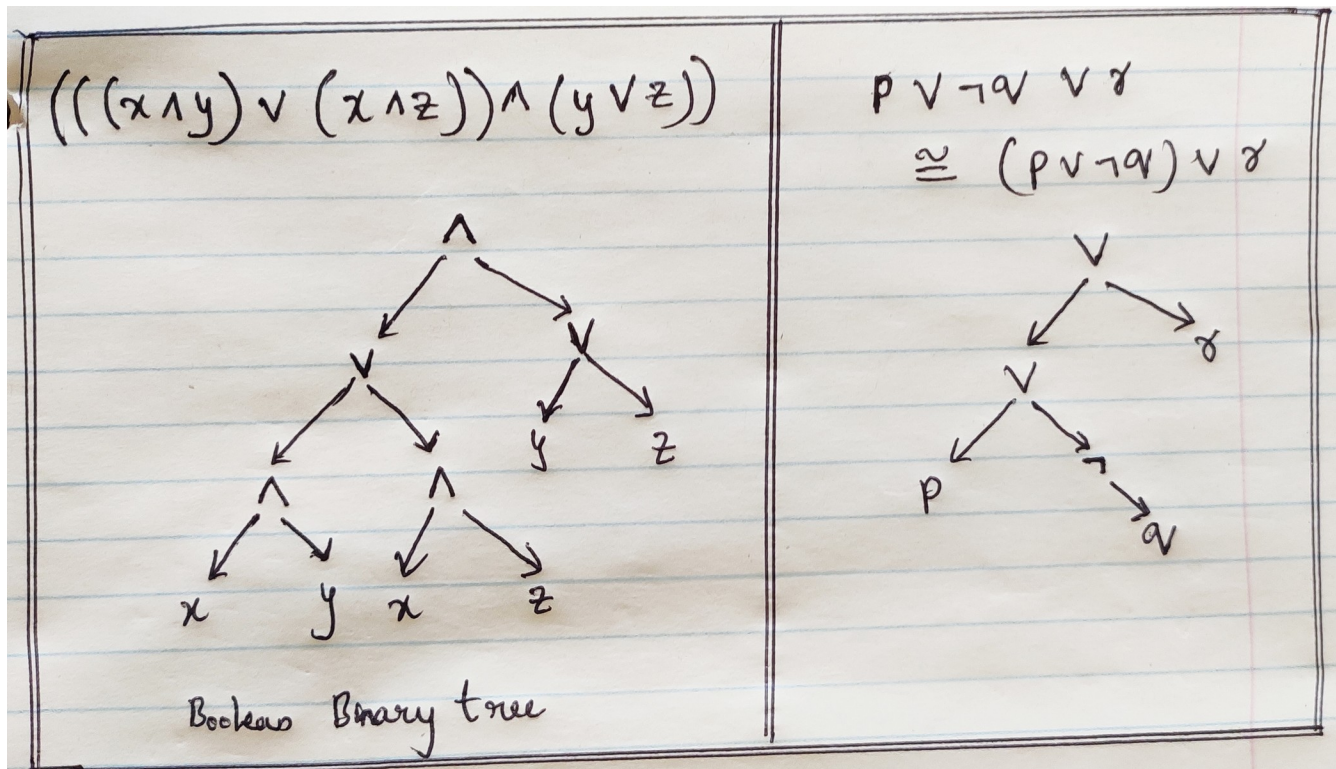 (((x∧y) ∨ (x∧z)) ∧ (y∨z))
∧
∨ ∨
∧ ∧ y z
x y x z
Boolean Binary tree
p ∨ ¬q ∨ r
≅ (p ∨ ¬q) ∨ r
∨
∨ r
p ¬
q